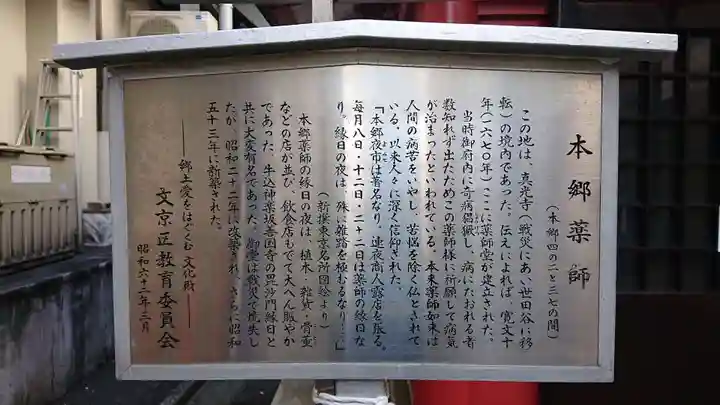 本郷薬師
(本郷四の二と三七の間)
この地は、真光寺(戦災にあい世田谷に移
転)の境内であった。伝えによれば、寛文十
年(一六七〇年)ここに薬師堂が建立された。
当時御府内に奇病猖獗し、病にたおれる者
数知れず出たためこの薬師様に祈願して病気
が治まったといわれている。本来薬師如来は
人間の病苦をいやし、苦悩を除く仏とされて
いる。以来人々に深く信仰された。
「本郷夜市は著名なり、連夜商人露店を張る。
毎月八日・十二日・二十二日は薬師の縁日な
り。縁日の夜は、殊に雑踏を極むるなり……」
(新撰東京名所図絵より)
本郷薬師の縁日の夜は、植木、雑貨・骨董
などの店が並び、飲食店もでて大へん賑やか
であった。牛込神楽坂善国寺の毘沙門縁日と
共に大変有名であった。御堂は戦災で焼失し
たが、昭和二十二年に改築され、さらに昭和
五十三年に新築された。
――郷土愛をはぐくむ文化財――
文京区教育委員会
昭和六十二年三月